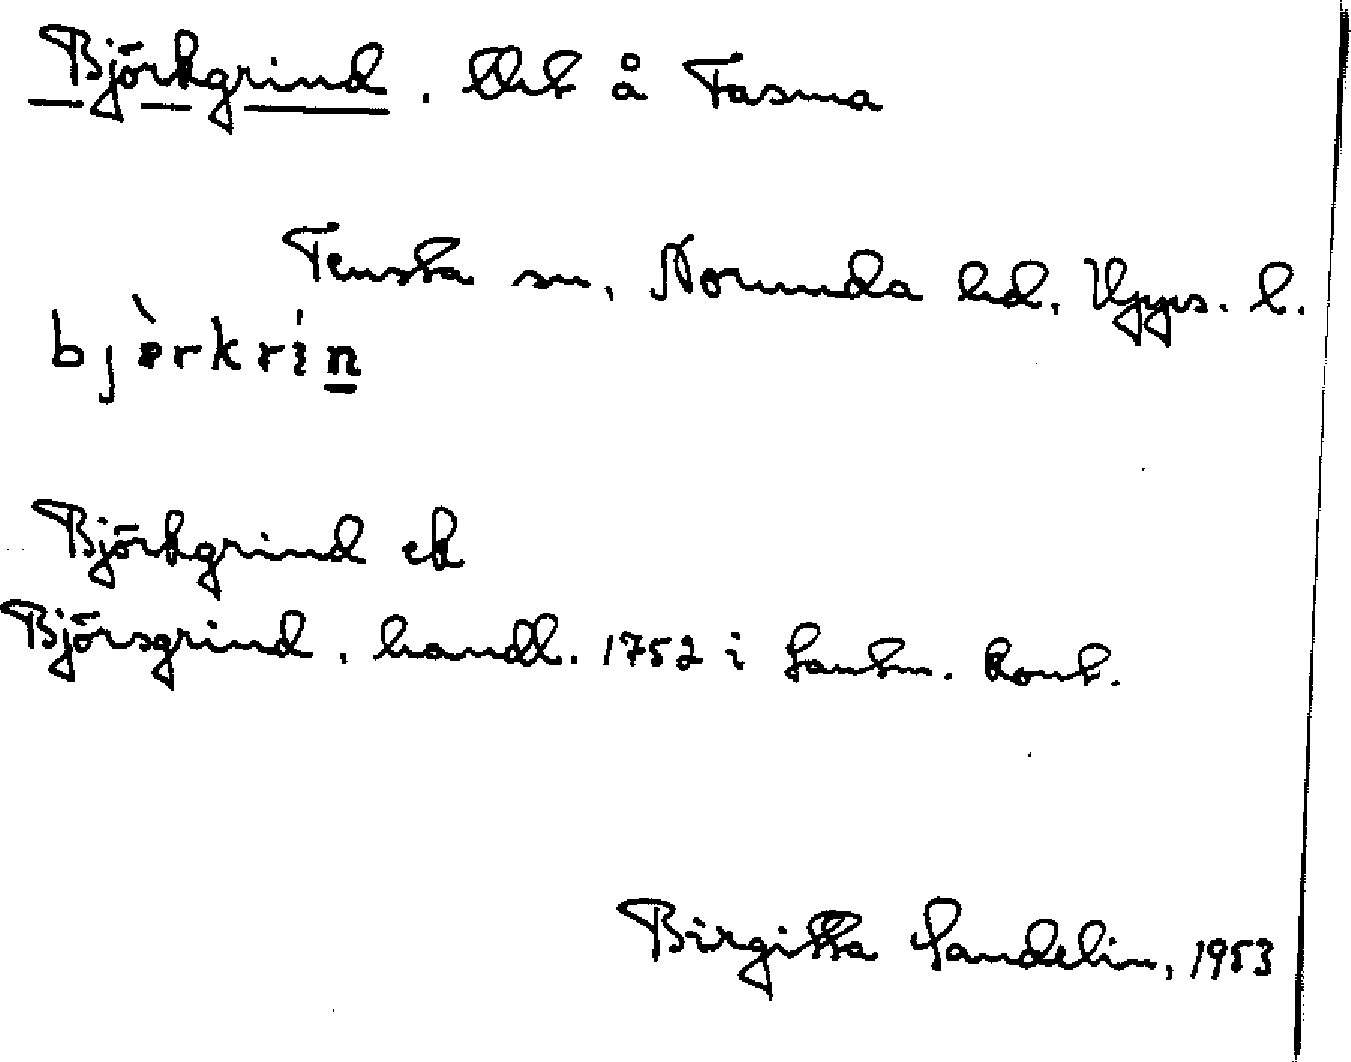 Björkgrind. Utt å Fasma
Tensta sn, Norunda hd. Upps. l.
bjèrkrín
Björkgrind ek
Björsgrind, handl. 1752 i Lantm. kont.
Birgitta Sandelin, 1953